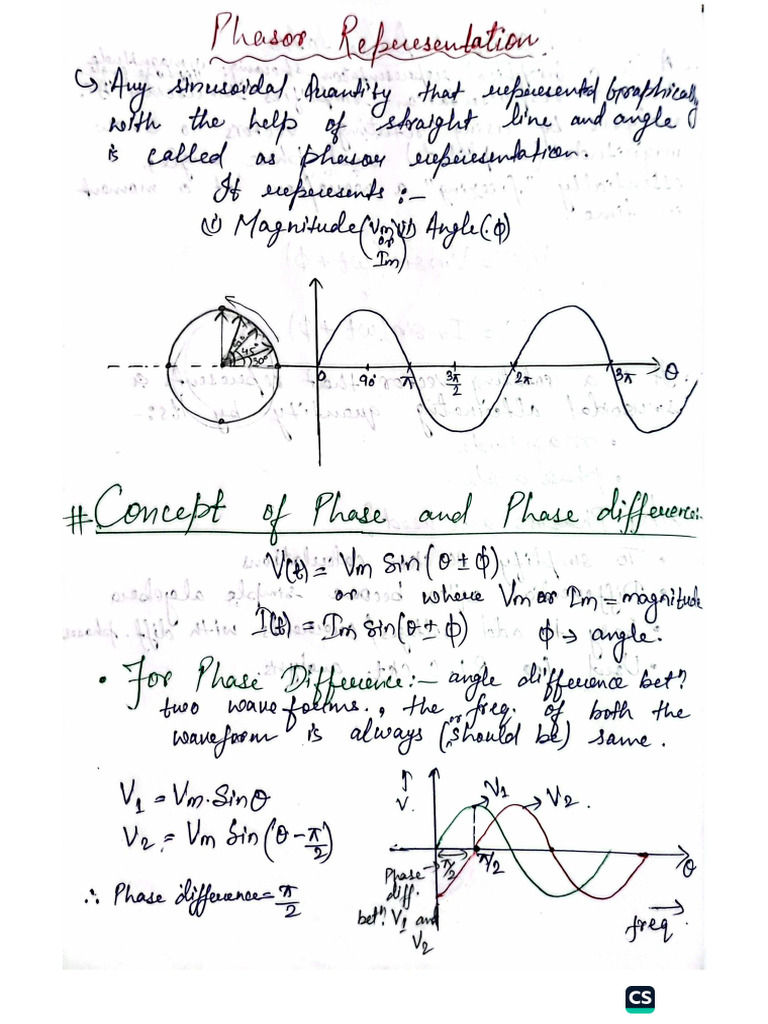 Phasor Representation
↳ Any sinusoidal Quantity that represented Graphically
with the help of straight line and angle
is called as phasor representation.
It represents :-
(i) Magnitude (Vm or Im) (ii) Angle (ϕ)
60°
45°
30°
0 90° π 3π/2 2π 3π θ
# Concept of Phase and Phase difference:-
V(t) = Vm Sin (θ ± ϕ)
or where Vm or Im = magnitude
I(t) = Im Sin (θ ± ϕ) ϕ → angle.
• For Phase Difference :- angle difference betⁿ
two waveforms., the freq. of both the
waveform is always (or should be) same.
V1 = Vm. Sin θ
V2 = Vm Sin (θ - π/2)
∴ Phase difference = π/2
V.
V1
V2.
π/2
π/2
θ
Phase
diff.
betⁿ V1 and
V2
freq
CS